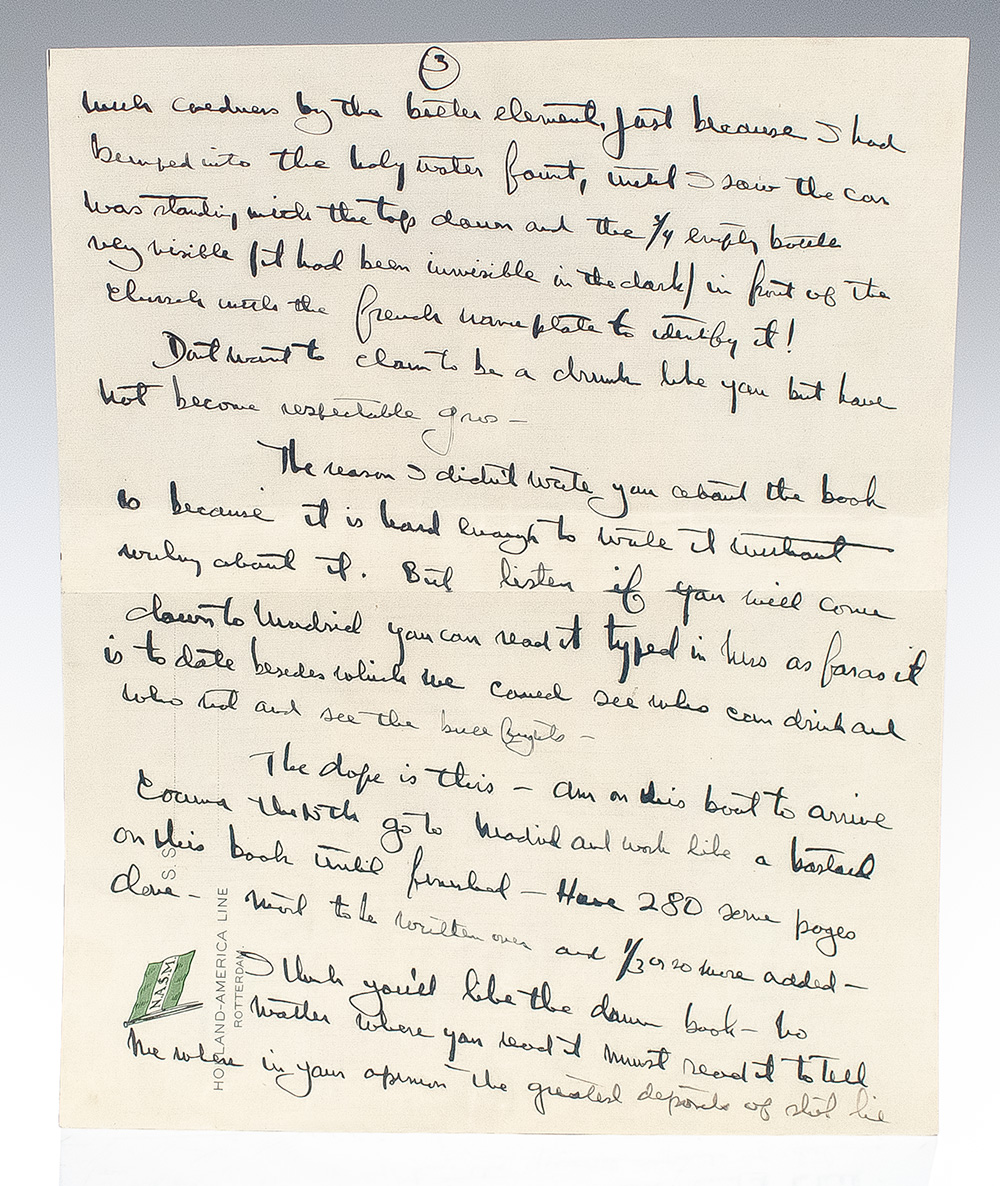 3
much coedness by the better element, just because I had
bumped into the holy water fount, until I saw the car
was standing with the top down and the 3/4 empty bottle
very visible (it had been invisible in the dark) in front of the
church with the french name plate to identify it!
Dont want to claim to be a drunk like you but have
not become respectable gus —
The reason I didn't write you about the book
is because it is hard enough to write it without
writing about it. But listen if you will come
down to Madrid you can read it typed in hwo as far as it
is to date besides which we could see who can drink and
who not and see the bull fights —
The dope is this — am on this boat to arrive
Coruna the 15th go to Madrid and work like a bastard
on this book until finished — Have 280 some pages
done — most to be written over and 1/3 or so more added —
I think you'd like the damn book — no
matter where you read it must read it to tell
me where in your opinion the greatest deposits of shit lie
S.S.
HOLLAND-AMERICA LINE
ROTTERDAM.
N.A.S.M.